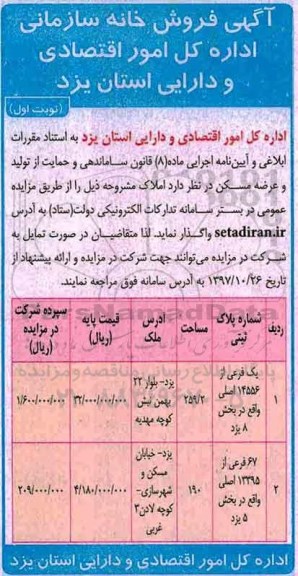 آگهی فروش خانه سازمانی
اداره کل امور اقتصادی
و دارایی استان یزد
(نوبت اول)
اداره کل امور اقتصادی و دارایی استان یزد به استناد مقررات
ابلاغی و آیین‌نامه اجرایی ماده(۸) قانون ساماندهی و حمایت از تولید
و عرضه مسکن در نظر دارد املاک مشروحه ذیل را از طریق مزایده
عمومی در بستر سامانه تدارکات الکترونیکی دولت(ستاد) به آدرس
setadiran.ir واگذار نماید. لذا متقاضیان در صورت تمایل به
شرکت در مزایده می‌توانند جهت شرکت در مزایده و ارائه پیشنهاد از
تاریخ ۱۳۹۷/۱۰/۲۶ به آدرس سامانه فوق مراجعه نمایند.
ردیف
شماره پلاک ثبتی
مساحت
آدرس ملک
قیمت پایه (ریال)
سپرده شرکت در مزایده (ریال)
۱
یک فرعی از
۱۴۵۵۶ اصلی
واقع در بخش
۸ یزد
۲۵۹/۲
یزد- بلوار ۲۲
بهمن نبش
کوچه مهدیه
۳۲/۰۰۰/۰۰۰/۰۰۰
۱/۶۰۰/۰۰۰/۰۰۰
۲
۶۷ فرعی از
۱۳۳۹۵ اصلی
واقع در بخش
۵ یزد
۱۹۰
یزد- خیابان
مسکن و
شهرسازی-
کوچه لادن۳
غربی
۴/۱۸۰/۰۰۰/۰۰۰
۲۰۹/۰۰۰/۰۰۰
اداره کل امور اقتصادی و دارایی استان یزد